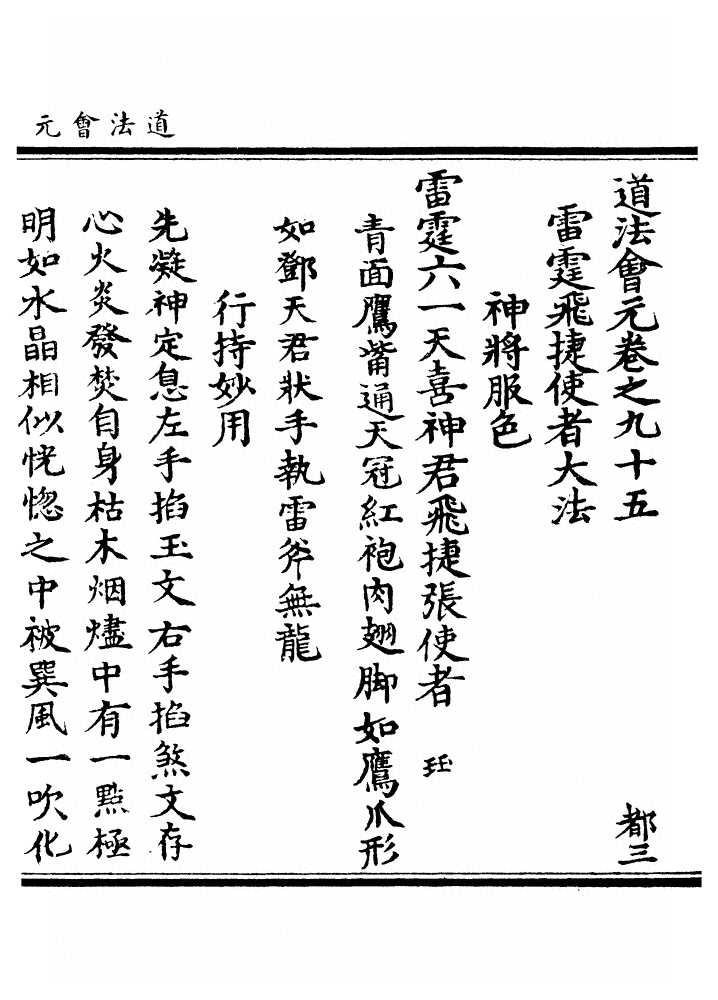 道法會元
道法會元卷之九十五 都三
雷霆飛捷使者大法
神將服色
雷霆六一天喜神君飛捷張使者 玨
青面鷹觜通天冠紅袍肉翅脚如鷹爪形
如鄧天君狀手執雷斧無龍
行持妙用
先凝神定息左手掐玉文右手掐煞文存
心火炎發焚自身枯木烟燼中有一點極
明如水晶相似恍惚之中被巽風一吹化